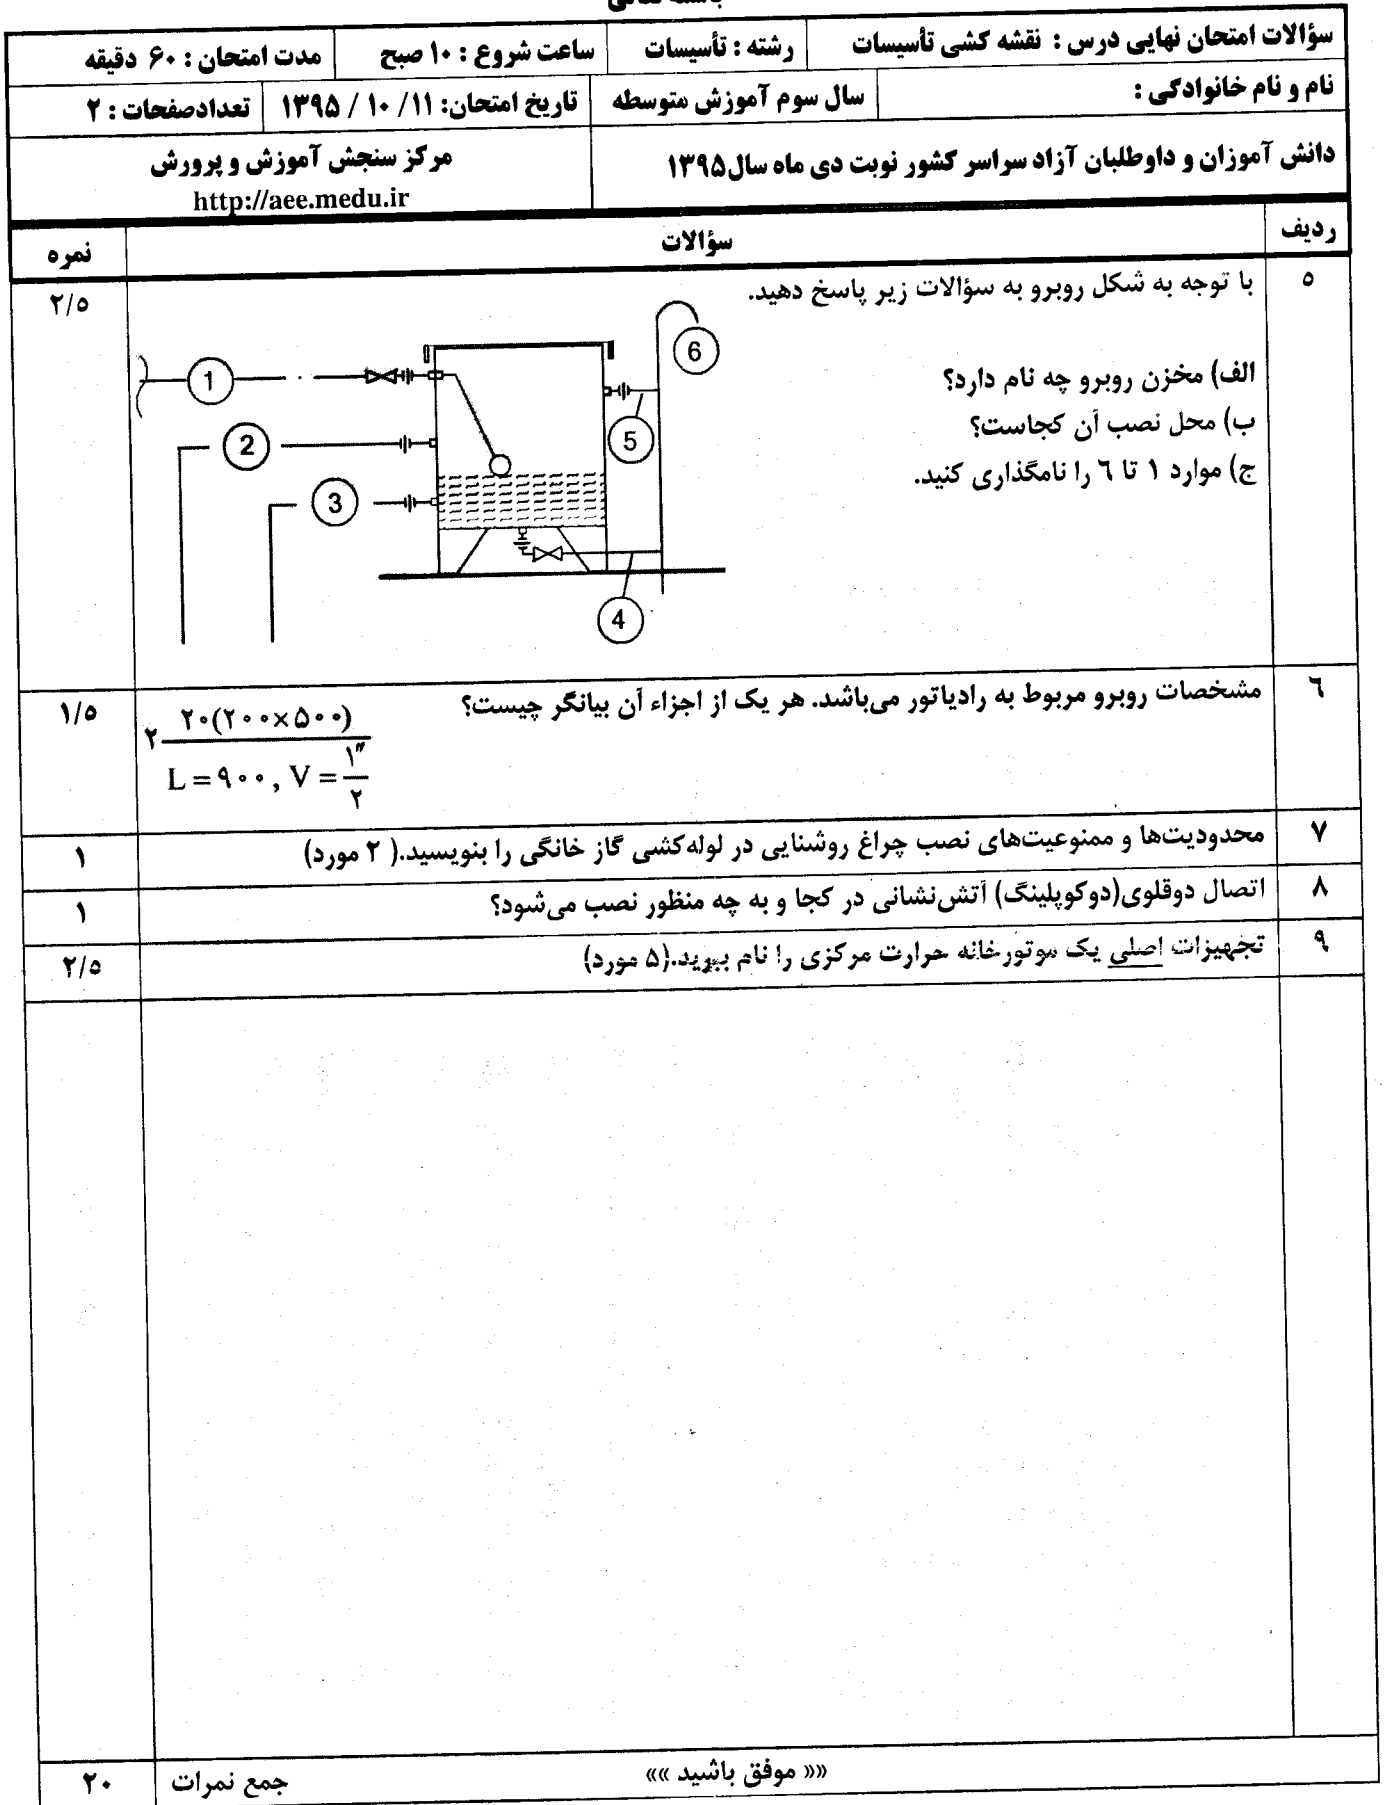 سؤالات امتحان نهایی درس : نقشه کشی تأسیسات رشته : تأسیسات ساعت شروع : ۱۰ صبح مدت امتحان : ۶۰ دقیقه
نام و نام خانوادگی : سال سوم آموزش متوسطه تاریخ امتحان: ۱۱/ ۱۰ / ۱۳۹۵ تعدادصفحات : ۲
دانش آموزان و داوطلبان آزاد سراسر کشور نوبت دی ماه سال۱۳۹۵ مرکز سنجش آموزش و پرورش
http://aee.medu.ir
ردیف سؤالات نمره
۵ با توجه به شکل روبرو به سؤالات زیر پاسخ دهید. ۲/۵
الف) مخزن روبرو چه نام دارد؟
ب) محل نصب آن کجاست؟
ج) موارد ۱ تا ٦ را نامگذاری کنید.
1
2
3
4
5
6
٦ مشخصات روبرو مربوط به رادیاتور می‌باشد. هر یک از اجزاء آن بیانگر چیست؟ ۱/۵
۲ ۲۰(۲۰۰×۵۰۰)
L = ۹۰۰ , V = ۱″/۲
۷ محدودیت‌ها و ممنوعیت‌های نصب چراغ روشنایی در لوله‌کشی گاز خانگی را بنویسید.( ۲ مورد) ۱
۸ اتصال دوقلوی(دوکوپلینگ) آتش‌نشانی در کجا و به چه منظور نصب می‌شود؟ ۱
۹ تجهیزات اصلی یک موتورخانه حرارت مرکزی را نام ببرید.(۵ مورد) ۲/۵
«« موفق باشید »» جمع نمرات ۲۰